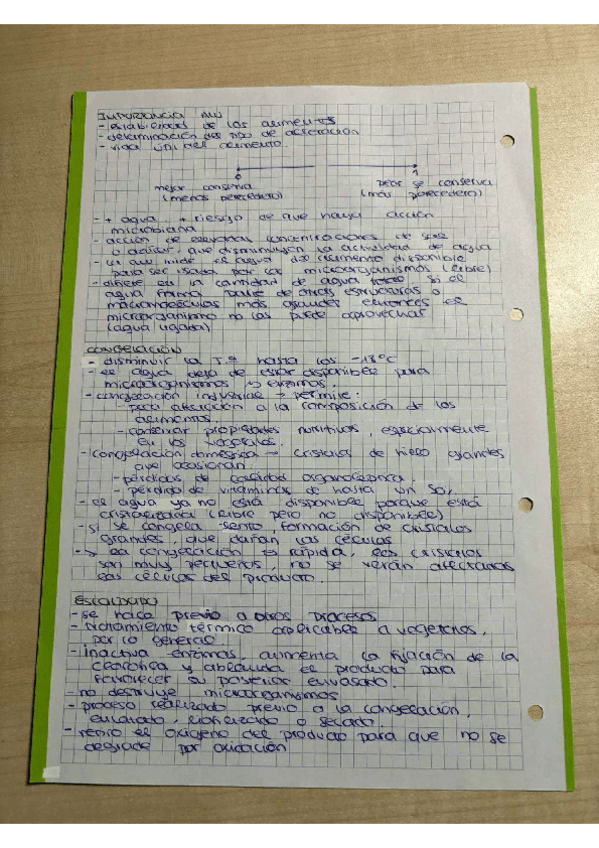 Importancia aw
- estabilidad de los alimentos
- determinación del tipo de alteración
- vida útil del alimento.
0 1
mejor conserva peor se conserva
(menos perecedero) (más perecedero)
- + agua, + riesgo de que haya acción
microbiana
- acción de elevadas concentraciones de sal
o azúcar, que disminuyen la actividad de agua
- la aw mide el agua del alimento disponible
para ser usada por los microorganismos (libre)
- difiere en la cantidad de agua si el
agua forma parte de otras estructuras o
macromoléculas más grandes entonces el
microorganismo no las puede aprovechar
(agua ligada)
CONGELACIÓN
- disminuir la Tª hasta los -18ºC
- el agua deja de estar disponible para
microorganismos y enzimas.
- congelación industrial → permite:
- poca alteración a la composición de los
alimentos
- conservar propiedades nutritivas, especialmente
en los vegetales.
- congelación doméstica → cristales de hielo grandes
que ocasionan
- pérdidas de calidad organoléptica.
- pérdida de vitaminas de hasta un 50%
- el agua ya no está disponible porque está
cristalizada (libre pero no disponible)
- si se congela lento formación de cristales
grandes, que dañan las células
- si la congelación es rápida, los cristales
son muy pequeños, no se verán afectadas
las células del producto.
ESCALDADO
- se hace previo a otros procesos
- tratamiento térmico aplicable a vegetales,
por lo general
- inactiva enzimas, aumenta la fijación de la
clorofila y ablanda el producto para
favorecer su posterior envasado.
- no destruye microorganismos
- proceso realizado previo a la congelación,
enlatado, liofilizado o secado.
- retiro el oxígeno del producto para que no se
degrade por oxidación